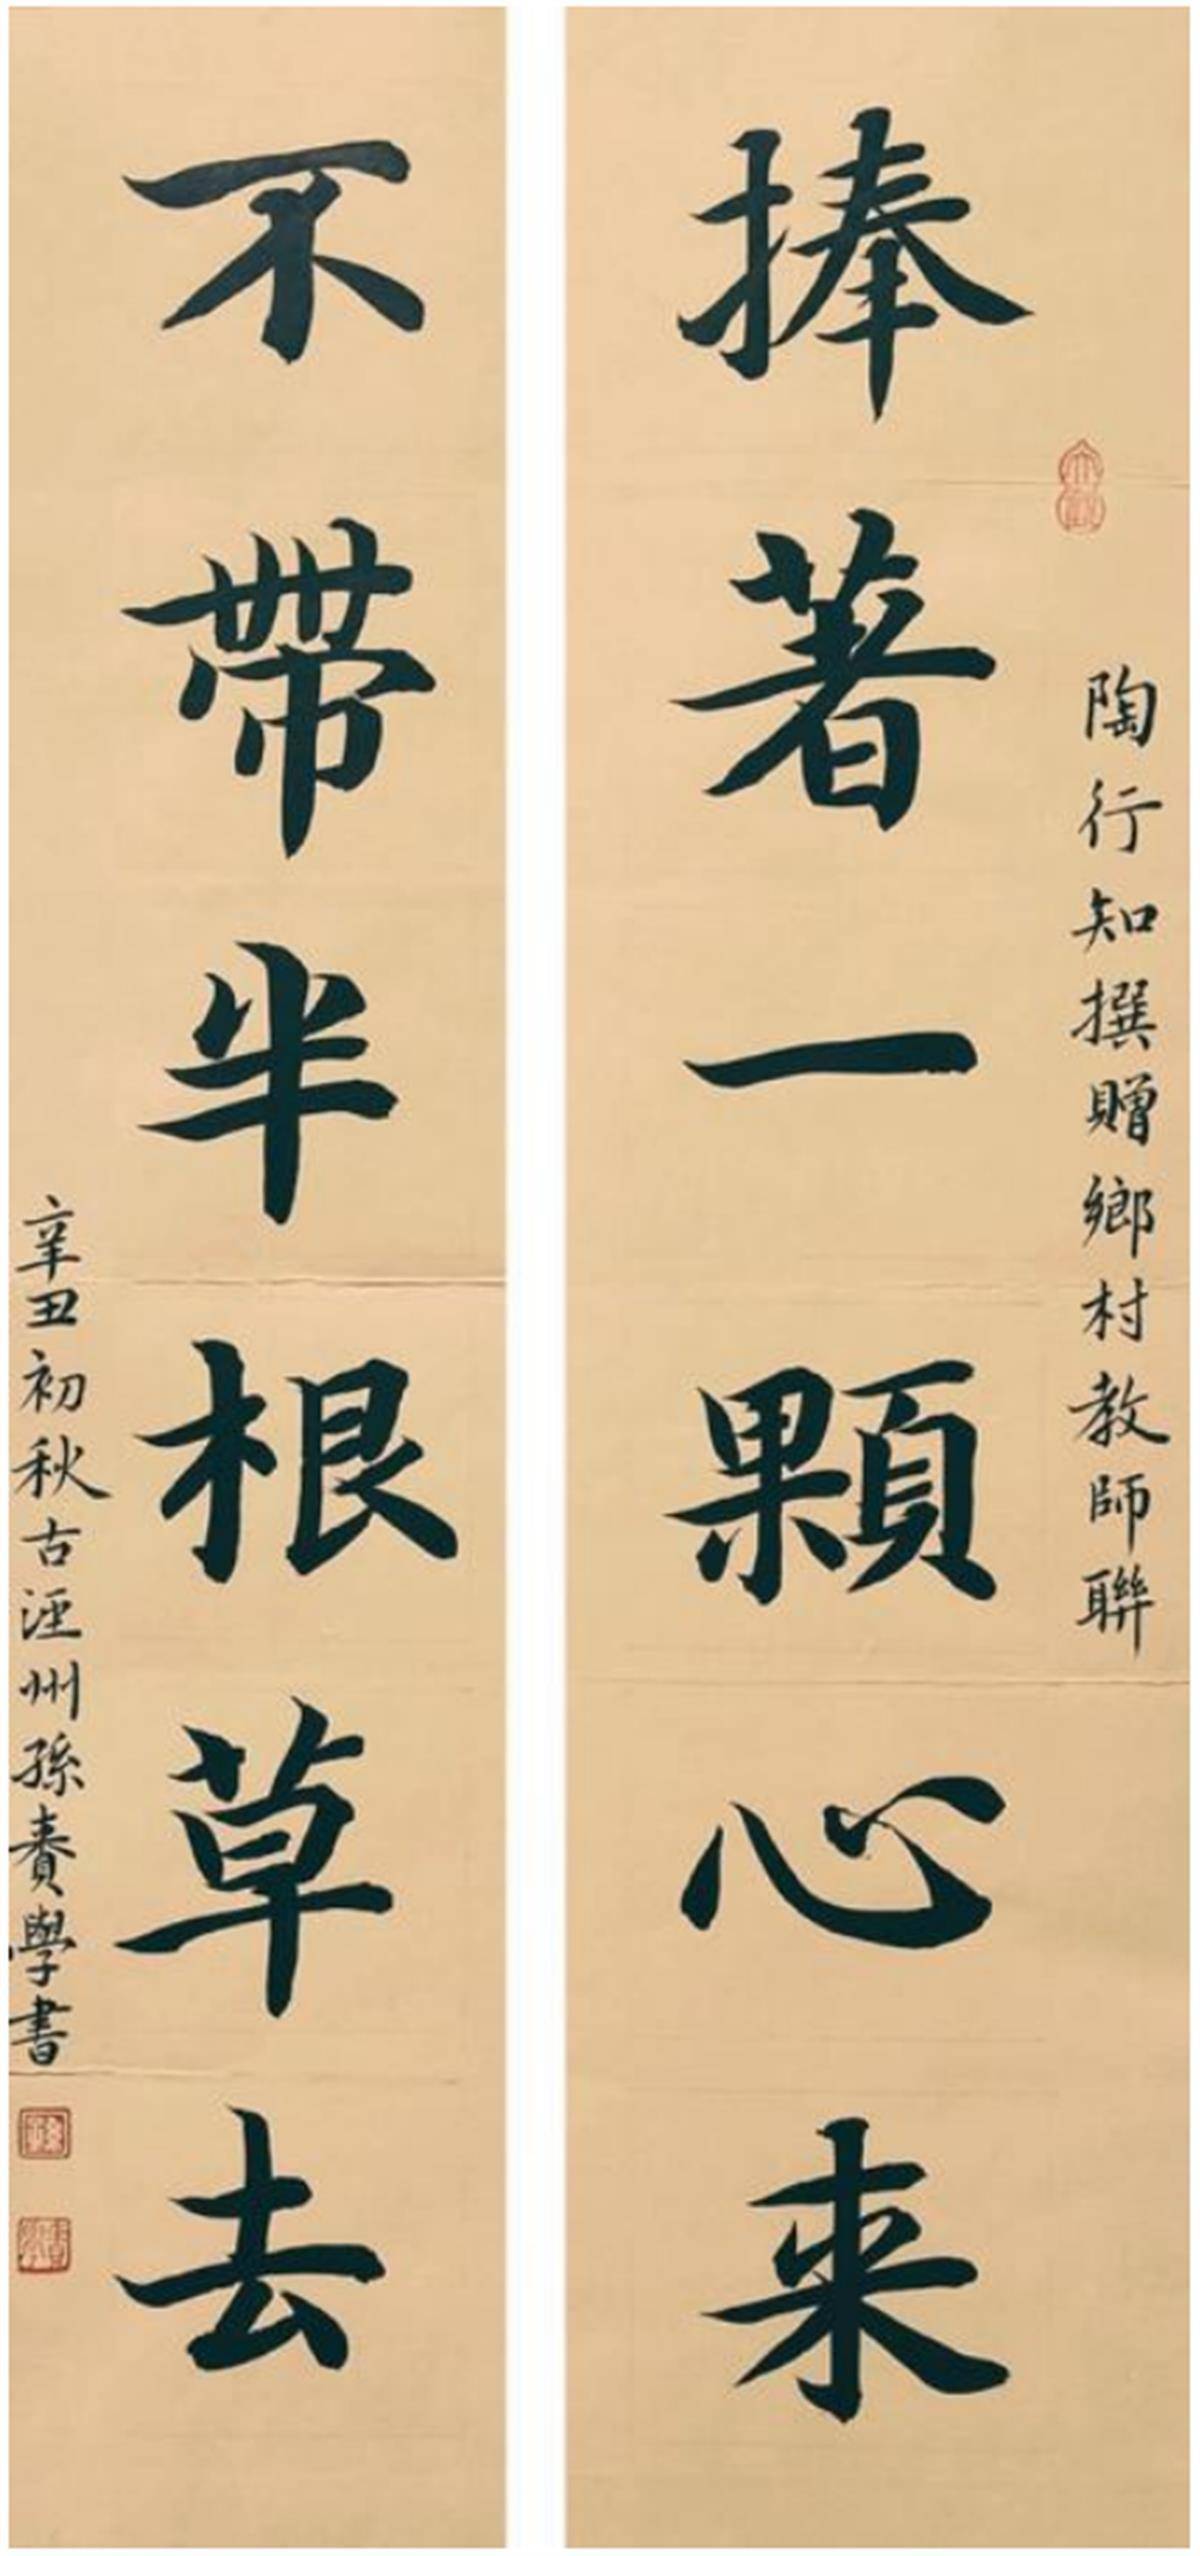 陶行知撰贈鄉村教師聯
捧著一顆心来
不帶半根草去
辛丑初秋古涇州孫賚學書